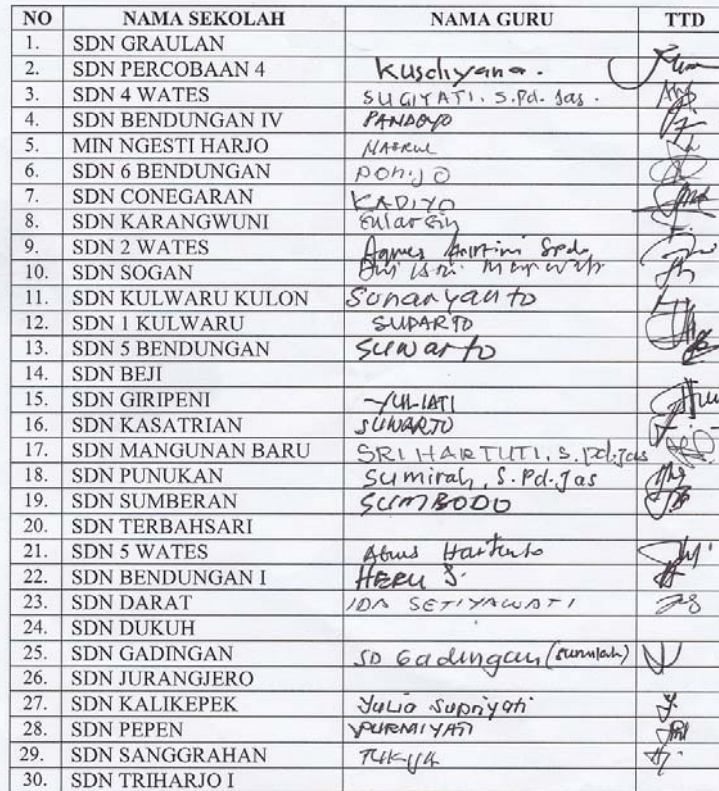 NO NAMA SEKOLAH NAMA GURU TTD
1. SDN GRAULAN
2. SDN PERCOBAAN 4 Kusdiyana.
3. SDN 4 WATES SUGIYATI. S.Pd. Jas.
4. SDN BENDUNGAN IV PANDOYO
5. MIN NGESTI HARJO
6. SDN 6 BENDUNGAN PONIJO
7. SDN CONEGARAN KADIYO
8. SDN KARANGWUNI
9. SDN 2 WATES Agnes Spd.
10. SDN SOGAN Dwi
11. SDN KULWARU KULON Sunaryanto
12. SDN 1 KULWARU SUDARTO
13. SDN 5 BENDUNGAN Suwarto
14. SDN BEJI
15. SDN GIRIPENI YULIATI
16. SDN KASATRIAN SUWARTO
17. SDN MANGUNAN BARU SRI HARTUTI. S.Pd.Jas
18. SDN PUNUKAN Sumirah, S.Pd.Jas
19. SDN SUMBERAN SUMBODO
20. SDN TERBAHSARI
21. SDN 5 WATES Agus Hartanto
22. SDN BENDUNGAN I HERU S.
23. SDN DARAT IDA SETIYAWATI
24. SDN DUKUH
25. SDN GADINGAN SD Gadingan (sumilah)
26. SDN JURANGJERO
27. SDN KALIKEPEK Yulia Supriyati
28. SDN PEPEN PURMIYATI
29. SDN SANGGRAHAN
30. SDN TRIHARJO I